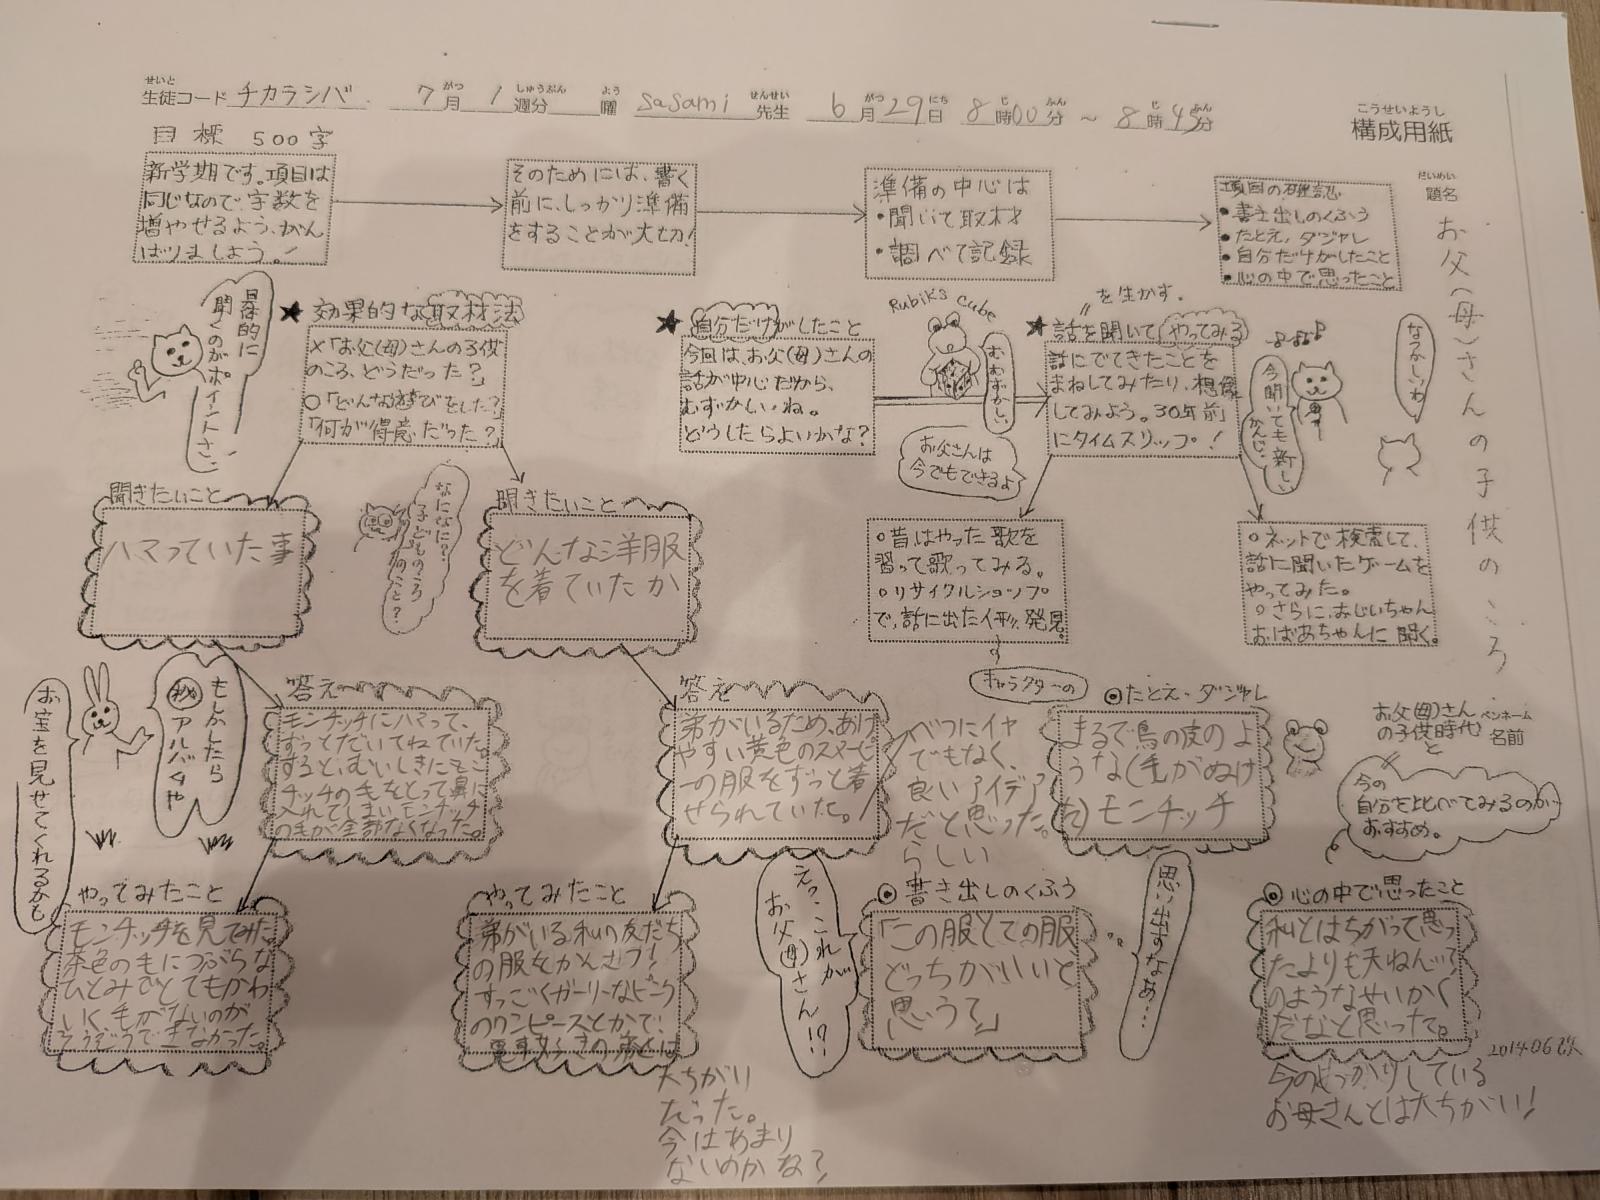 せいと
生徒コード チカラシバ 7月 1週分 曜 sasami 先生 6月29日 8時00分 ～ 8時45分
がつ しゅうぶん よう せんせい がつ にち じ ふん じ ふん
こうせいようし
構成用紙
目標 500字
新学期です。項目は
同じなので、字数を
増やせるよう、がん
ばりましょう。!
そのためには、書く
前に、しっかり準備
をすることが大切!
準備の中心は
・聞いて取材
・調べて記録
項目の確認
・書き出しのくふう
・たとえ、ダジャレ
・自分だけがしたこと
・心の中で思ったこと
だいめい
題名
お父(母)さんの子供のころ
具体的に
聞くのがポ
イントさ。
★効果的な取材法
×「お父(母)さんの子供
のころ、どうだった?」
○「どんな遊びをした?」
「何が得意だった?」
★自分だけがしたこと
今回は、お父(母)さんの
話が中心だから、
むずかしいね。
どうしたらよいかな?
Rubik's Cube
むむずかしい
お父さんは
今でもできるよ
を生かす。
★話を聞いてやってみる
話にでてきたことを
まねしてみたり、想像
してみよう。30年前
にタイムスリップ!
今聞いても新しい
かんじ。
なつかしいわ
聞きたいこと
ハマっていた事
なになに?
子どものころ
のこと?
聞きたいこと
どんな洋服
を着ていたか
○昔はやった歌を
習って歌ってみる。
○リサイクルショップ
で、話に出た人形、発見。
キャラクターの
○ネットで検索して、
話に聞いたゲームを
やってみた。
○さらに、おじいちゃん
おばあちゃんに聞く。
もしかしたら
㊙アルバムや
お宝を見せてくれるかも
答え
モンチッチにハマって、
ずっとだいてねていた。
すると、むいしきにモン
チッチの毛をとって鼻に
入れてしまいモンチッチ
の毛が全部なくなった。
答え
弟がいるため、あげ
やすい黄色のスヌーピ
ーの服をずっと着
せられていた。
べつにイヤ
でもなく、
良いアイデア
だと思った。
らしい
◎たとえ・ダジャレ
まるで鳥の皮のよ
うな(毛がぬけ
た)モンチッチ
お父(母)さん
の子供時代
と
今の
自分を比べてみるのが
おすすめ。
ペンネーム
名前
やってみたこと
モンチッチを見てみた
茶色の毛につぶらな
ひとみでとてもかわ
いく毛がないのが
そうぞうできなかった。
やってみたこと
弟がいる私の友だち
の服をかんさつ!
すっごくガーリーなピンク
のワンピースとかで!
大ちがい
だった。
今はあまり
ないのかな?
えっ、これが
お父(母)さん!?
◎書き出しのくふう
「この服とての服
どっちがいいと
思う?」
思い出すなあ…
◎心の中で思ったこと
私とはちがって思っ
たよりも天ねん
のようなせいかく
だなと思った。
今のしっかりしている
お母さんとは大ちがい!